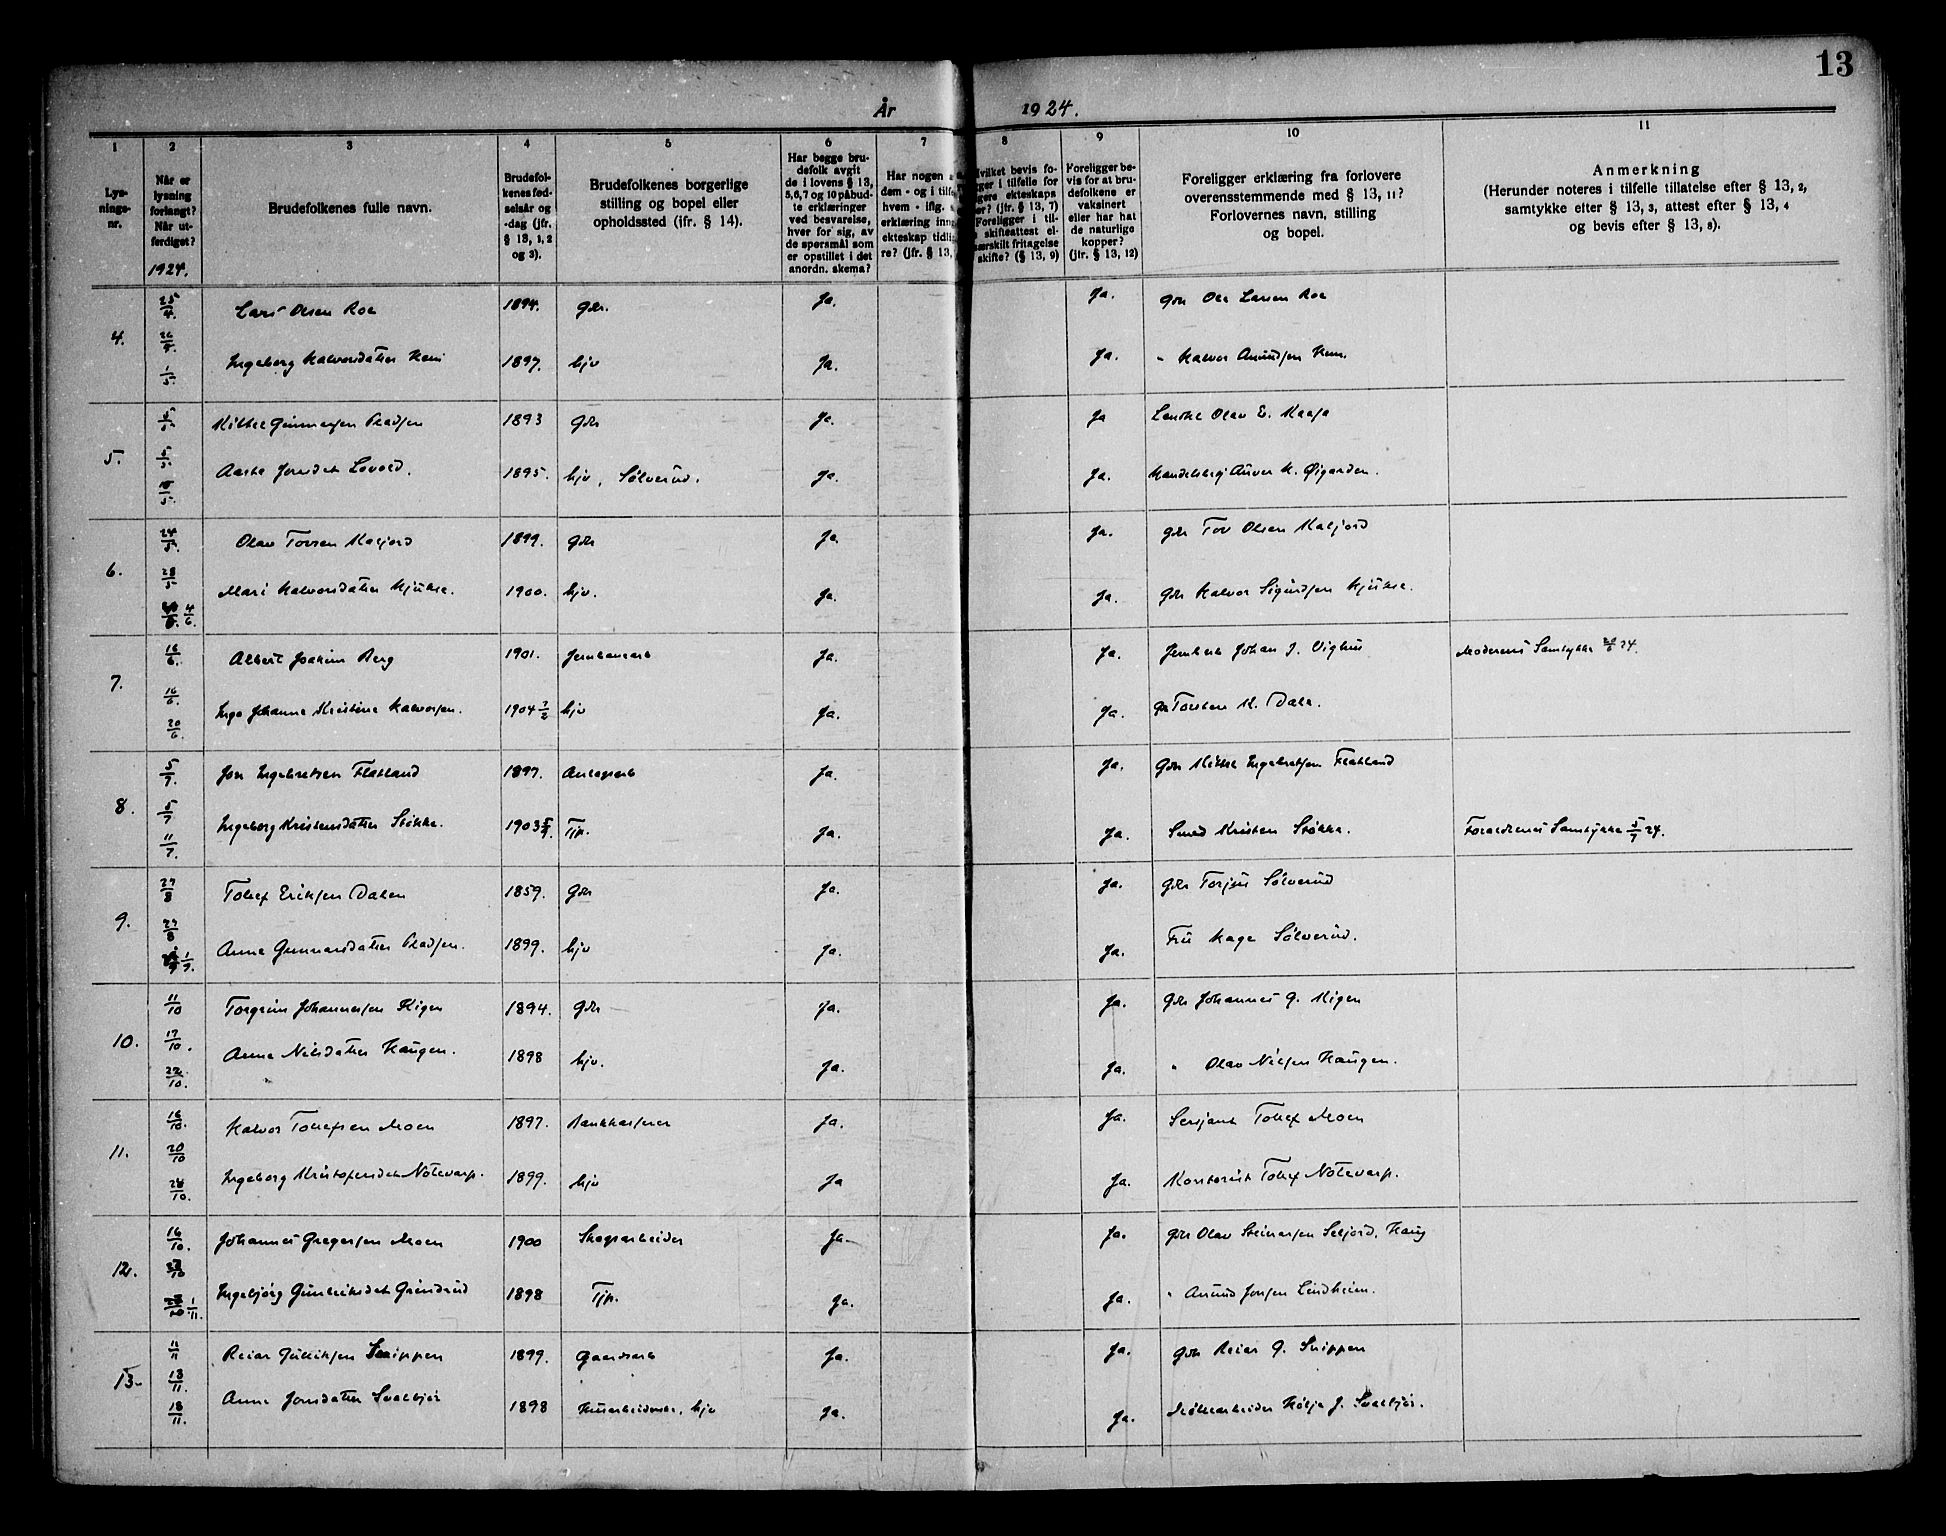 13
År 1924.
1 2 3 4 5 6 7 8 9 10 11
Lys-
nings-
nr.
Når er
lysning
forlangt?
Når ut-
ferdiget?
1924.
Brudefolkenes fulle navn.
Brudefol-
kenes fød-
selsår og
-dag (jfr.
§ 13, 1, 2
og 3).
Brudefolkenes borgerlige
stilling og bopel eller
opholdssted (ifr. § 14).
Har begge bru-
defolk avgit
de i lovens § 13,
5,6,7 og 10 påbud-
te erklæringer
ved besvarelse,
hver for sig, av
de spørsmål som
er opstillet i det
anordn. skema?
Har nogen
dem - og i tilf
hvem - iflg.
erklæring inng
ekteskap tidli
re? (jfr. § 13,
vilket bevis fo-
ger i tilfelle for
gere ekteskaps
er? (jfr. § 13, 7)
Foreligger i til-
skifteattest el-
særskilt fritagelse
skifte? (§ 13, 9)
Foreligger be-
vis for at bru-
defolkene er
vaksinert
eller har hat
de naturlige
kopper?
(jfr. § 13, 12)
Foreligger erklæring fra forlovere
overensstemmende med § 13, 11?
Forlovernes navn, stilling
og bopel.
Anmerkning
(Herunder noteres i tilfelle tillatelse efter § 13, 2,
samtykke efter § 13, 3, attest efter § 13, 4
og bevis efter § 13, 8).
25/4. Lars Olsen Roe 1894. Gdr. Ja. Ja. Gdr Ole Larsen Roe
4. 26/4.
1/5. Ingeborg Halvorsdatter Hem 1897. hjv Ja. Ja. " Halvor Amundsen Hem.
5/5. Kittel Gunnarsen 1893 Gdr Ja. Ja Olav E. Kaasa
5. 5/5.
15/5. Aaste Jonsdat 1895. hjv, Sølverud. Ja. Ja. Handelsbetj K. Øigarden.
24/5. Olav Tovsen Haljord 1899. Gdr Ja. Ja. Gdr Tov Olsen Haljord
6. 28/5
4/6. Mari Halvorsdatter Hjukse. 1900. hjv. Ja. Ja. Gdr Halvor Sigurdsen Hjukse.
16/6. Albert Joakim Berg 1901. Jernbanearb Ja. Ja. Johan J. Vighus Moderens Samtykke 24.
7. 16/6.
20/6. Inga Johanne Kristine Halvorsen. 1904 7/2 hjv Ja. Ja. Torsten K. Dale.
5/7. Jon Ingebretsen Flatland 1897. Anlegsarb Ja. Ja. Gdr Kittel Ingebretsen Flatland
8. 5/7
11/7. Ingeborg Kristensdatter Stokke. 1903 Tjp. Ja. Ja. Smed Kristen Stokke. Foraeldrenes Samtykke 5/7 24.
27/8 Tollef Eriksen Dalen 1859. Gdr Ja. Ja. Gdr Torjus Sølverud
9. 27/8
1/9. Anne Gunnarsdatter 1899. hjv Ja. Ja. Fru Hage Sølverud.
11/10 Torgrim Johannessen Higen 1894. Gdr Ja. Ja. Gdr Johannes G. Higen
10. 17/10.
22/10. Anne Nilsdatter Haugen. 1898 hjv. Ja. Ja. " Olav Nilsen Haugen.
16/10. Halvor Tollefsen Moen 1897. Bankkasserer Ja. Ja. Sersjant Tollef Moen
11. 20/10
24/10. Ingeborg Kristofersdat Notevarp. 1899. hjv Ja Ja. Kontorist Tollef Notevarp.
16/10. Johannes Gregersen Moen 1900 Skogsarbeider Ja. Ja. Gdr Olav Steinarsen Seljord, Haug
12. 27/10
1/11. Ingebjørg Gunleiksdat Grindrud 1898 Tjp. Ja. Ja. " Amund Jonsen Lindheim.
11/11 Reiar Gulliksen Snippen 1899. Gaardsarb Ja. Ja. Gdr Reiar G. Snippen
13. 13/11.
18/11. Anne Jonsdatter Svalbjør 1898 Husarbeiderske, hjv Ja. Ja. J. Svalbjør.